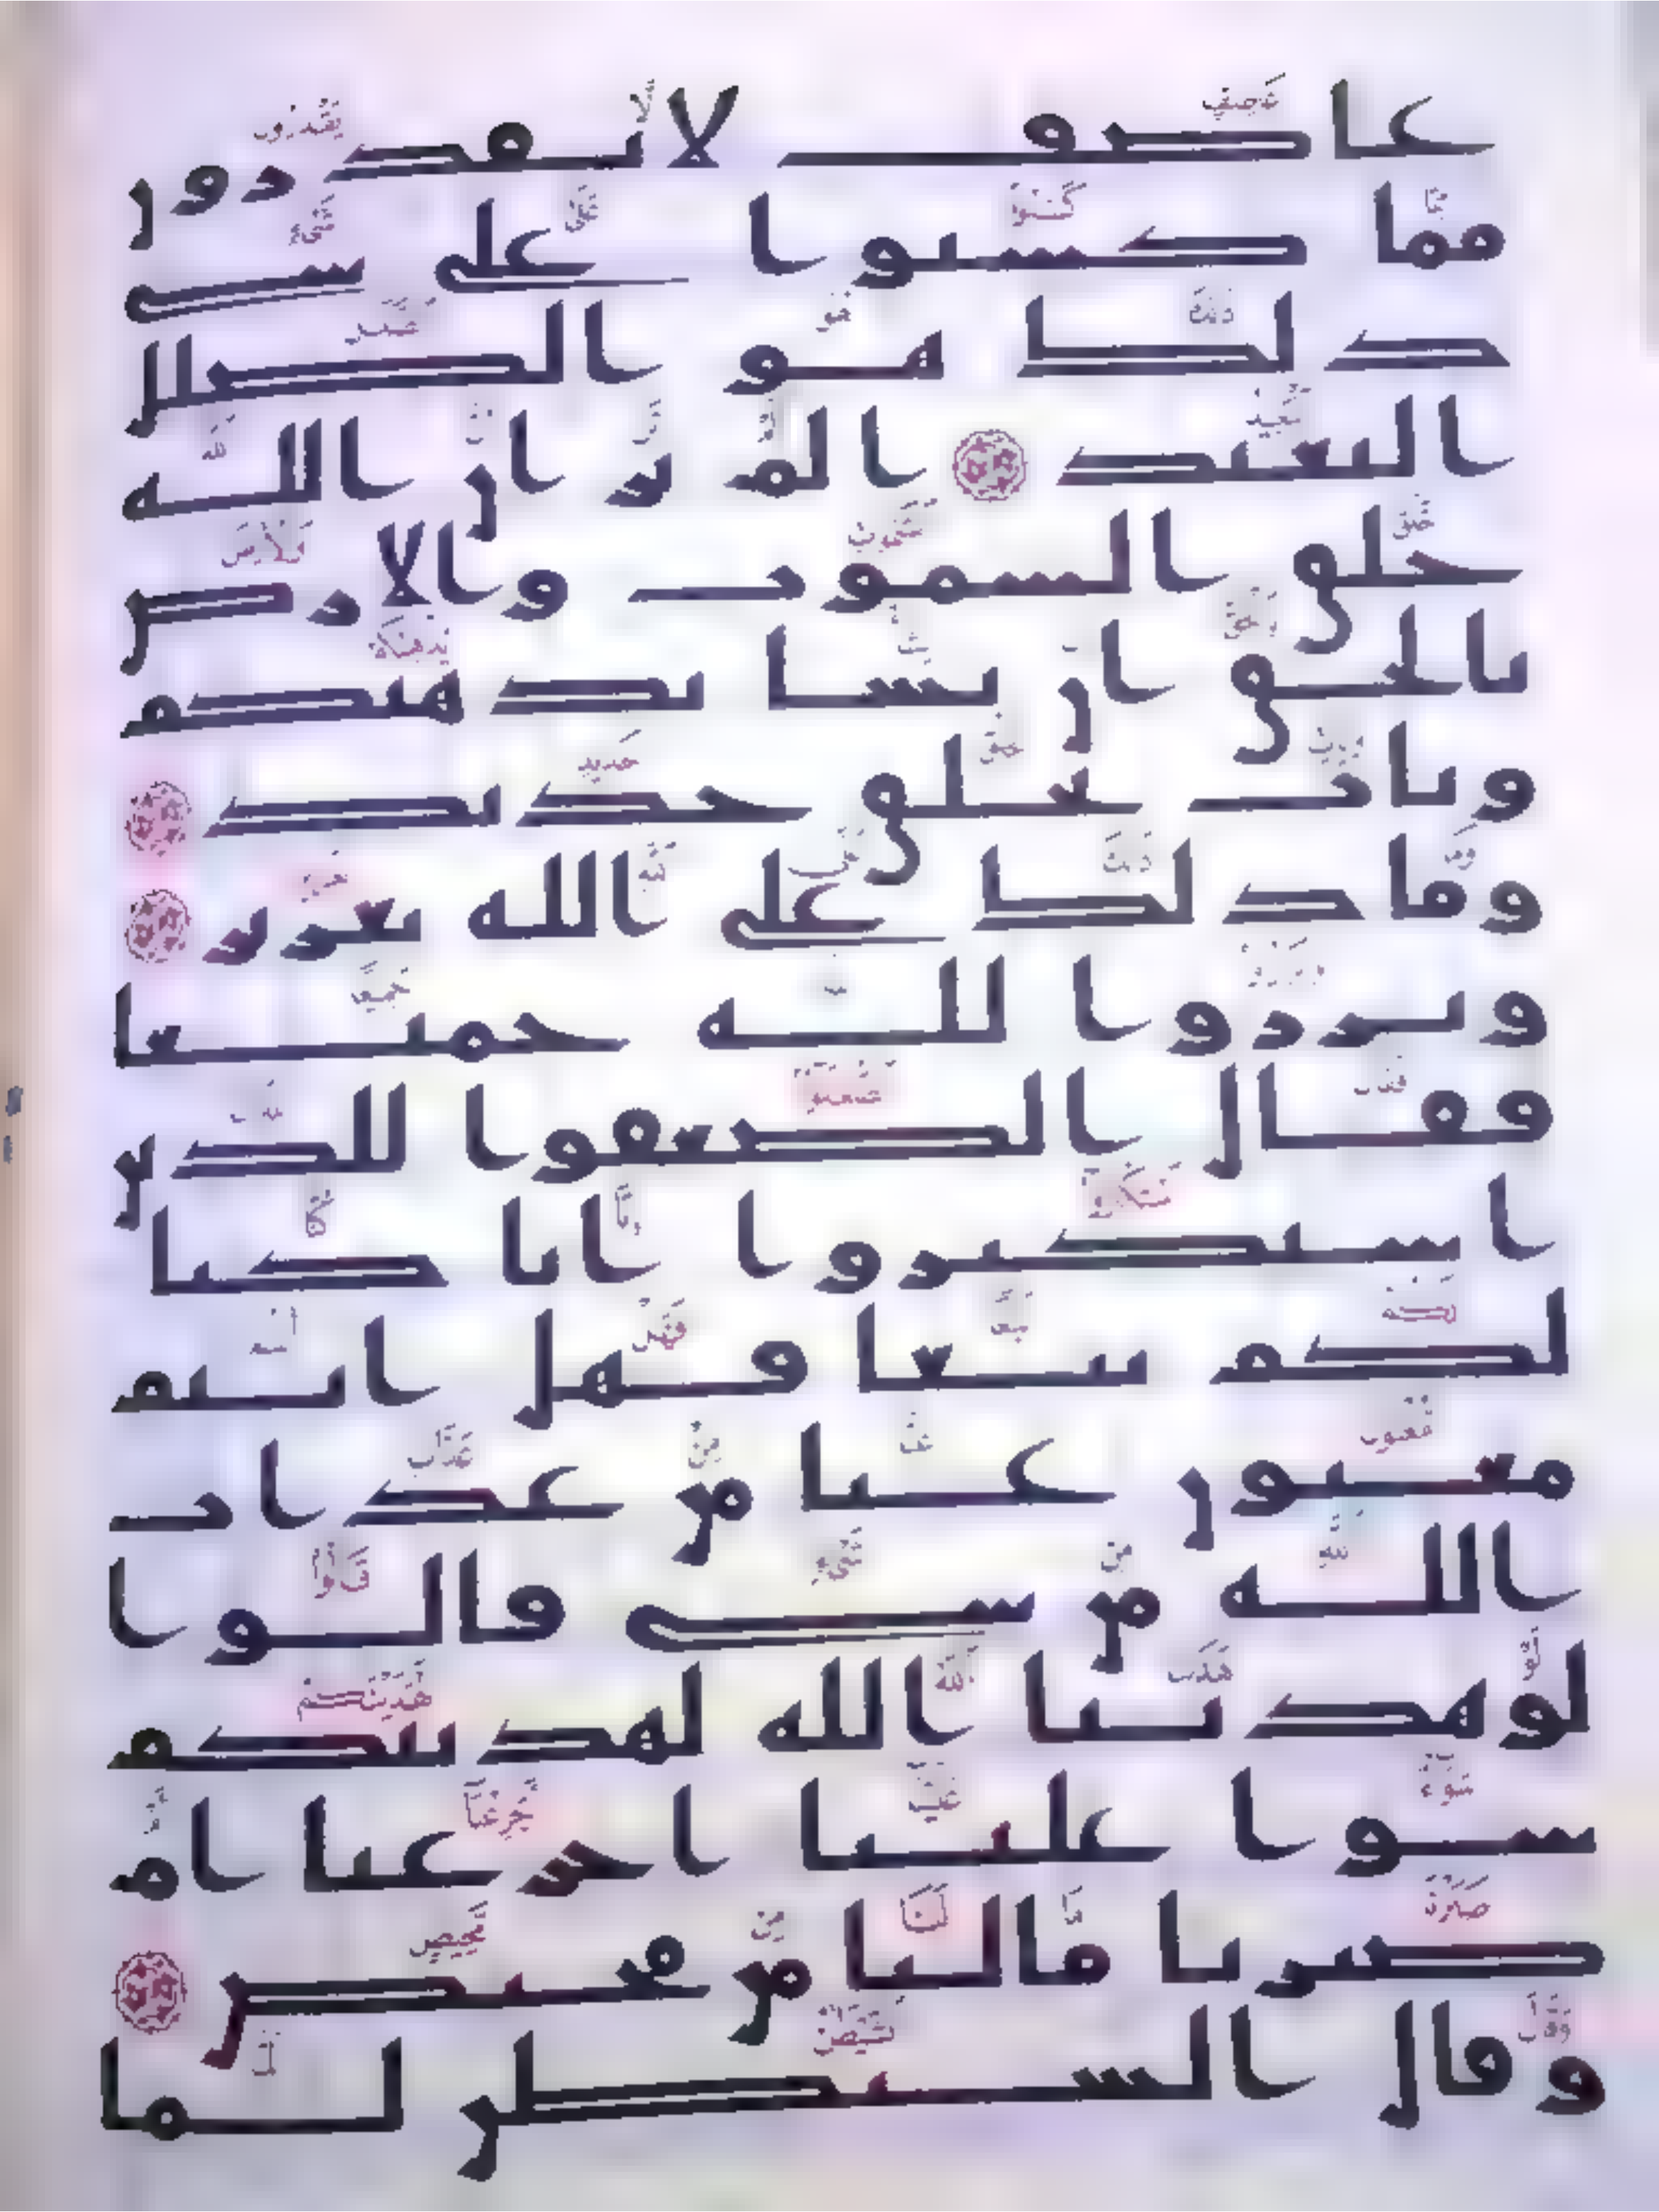 عاصف لا يقدرون
مما كسبوا على شى
ذلك هو الضلل
البعيد الم تر ان الله
خلق السموت والارض
بالحق ان يشا يذهبكم
ويات بخلق جديد
وما ذلك على الله بعزيز
وبرزوا لله جميعا
فقال الضعفوا للذين
استكبروا انا كنا
لكم تبعا فهل انتم
مغنون عنا من عذاب
الله من شى قالوا
لو هدىنا الله لهدينكم
سوا علينا اجزعنا ام
صبرنا ما لنا من محيص
وقال الشيطن لما